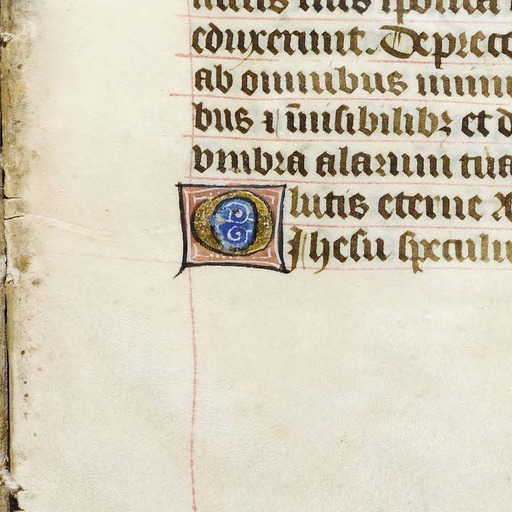 eduxerunt. Deprecc
ab omnibus inimi
bus ⁊ īuisibilibꝫ et d
vmbra alarum tua
O lutis eterne x
Jhesu speculu